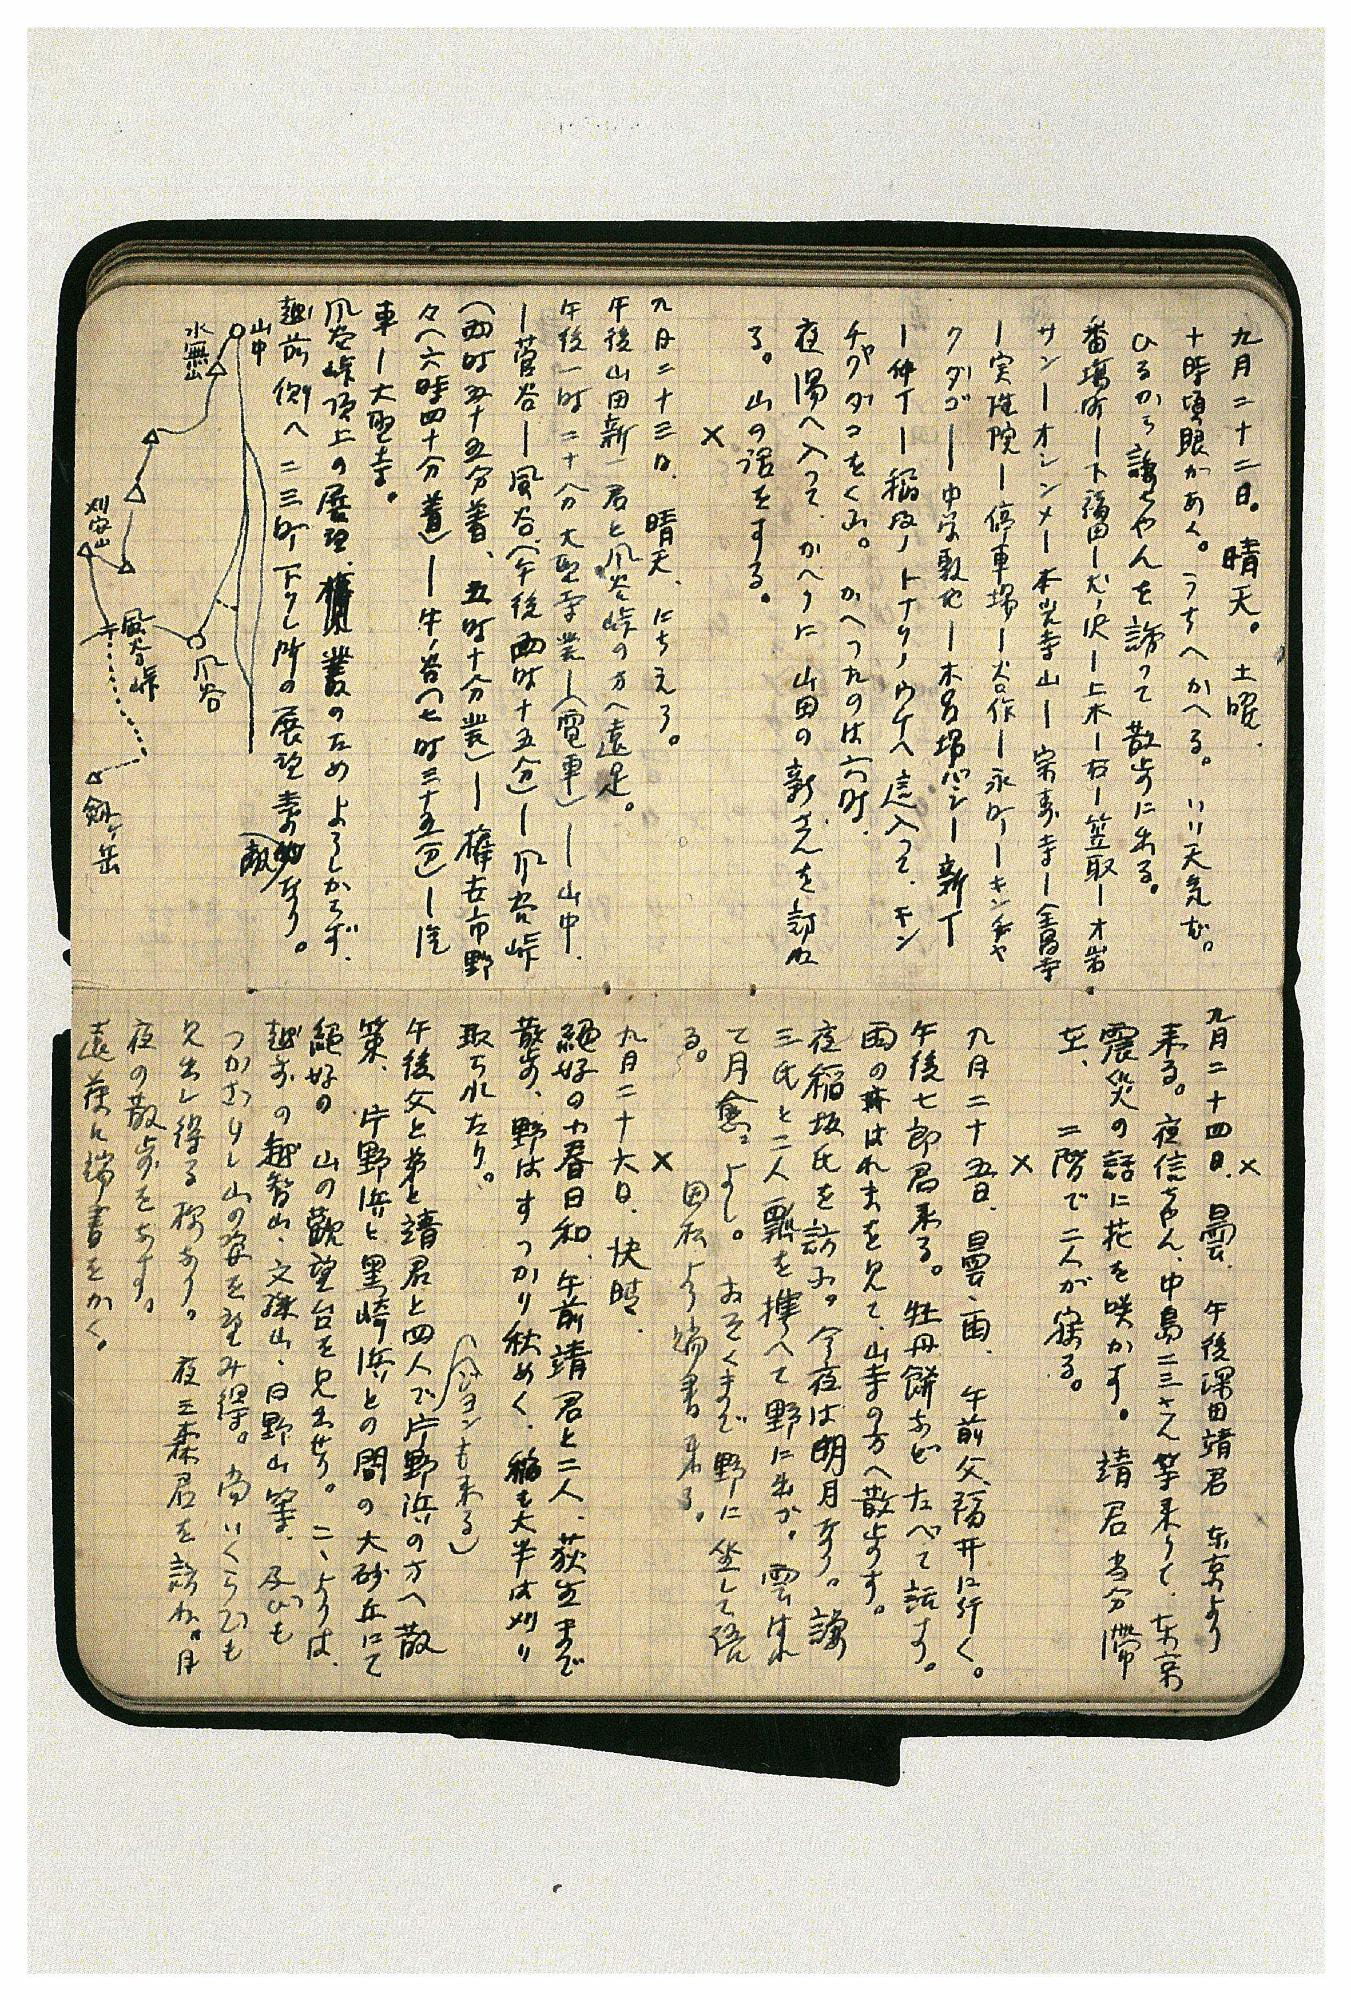 九月二十二日。晴天。土曜.
十時頃眼があく。うすへかへる。いゝ天気だ。
ひるから謙ちやんを誘つて散歩に出る。
番場町ー下福田ー犬ノ沢ー上木ー右ー笠取ーオ岩
サンーオンメー本光寺山ー宗寿寺ー全昌寺
ー実性院ー停車場ー大谷作ー永町ーキンチヤ
クダゴー中学敷地ー木呂場バシー新丁
ー仲丁ー稲坂ノトナリノウケヘ這入つて、キン
チヤクダゴをくふ。かへつたのは六時.
夜湯へ入つて、かへりに山田の新さんを訪ね
る。山の話をする。
×
九月二十三日、晴天、にちえう。
午後山田新一君と風谷峠の方へ遠足。
午後一時二十分大聖寺発ー(電車)ー山中.
ー菅谷ー風谷(午後四時十五分)ー風谷峠
(四時五十五分着、五時十分発)ー権世市野
々(六時四十分着)ー牛ノ谷(七時三十五分)ー汽
車ー大聖寺。
風谷峠頂上の展望、叢のためよろしからず、
越前側へ二三町下りし所の展望素敵なり。
(敵)
山中
水無山
刈安山
風谷峠
風谷
剱ヶ岳
九月二十四日、曇、午後深田靖君東京より
来る。夜信ちやん、中島二三さん等来りて、東京
震災の話に花を咲かす。靖君当分滞
在、二階で二人が寝る。
×
九月二十五日、曇、雨、午前父福井に行く。
午後七郎君来る。牡丹餅などたべて話す。
雨の霽はれまを見て、山寺の方へ散歩す。
夜稲坂氏を訪ふ。今夜は明月なり。謙
三氏と二人瓢を携へて野に出づ。雲はれ
て月愈〻よし。おそくまで野に坐して語
る。田松より端書来る。
×
九月二十六日、快晴.
絶好の小春日和、午前靖君と二人、荻生まで
散歩、野はすつかり秋めく、稲も大半は刈り
取られたり。
(ジヨンも来る)
午後父と弟と靖君と四人で片野浜の方へ散
策、片野浜と黒崎浜との間の大砂丘にて
絶好の山の観望台を見出せり。こゝよりは、
越前の越智山、文殊山、日野山等、及びも
つかざりし山の姿を望み得。尚いくらでも
見出し得る様あり。夜三森君を訪ね、月
夜の散歩をなす。
遠藤に端書をかく。